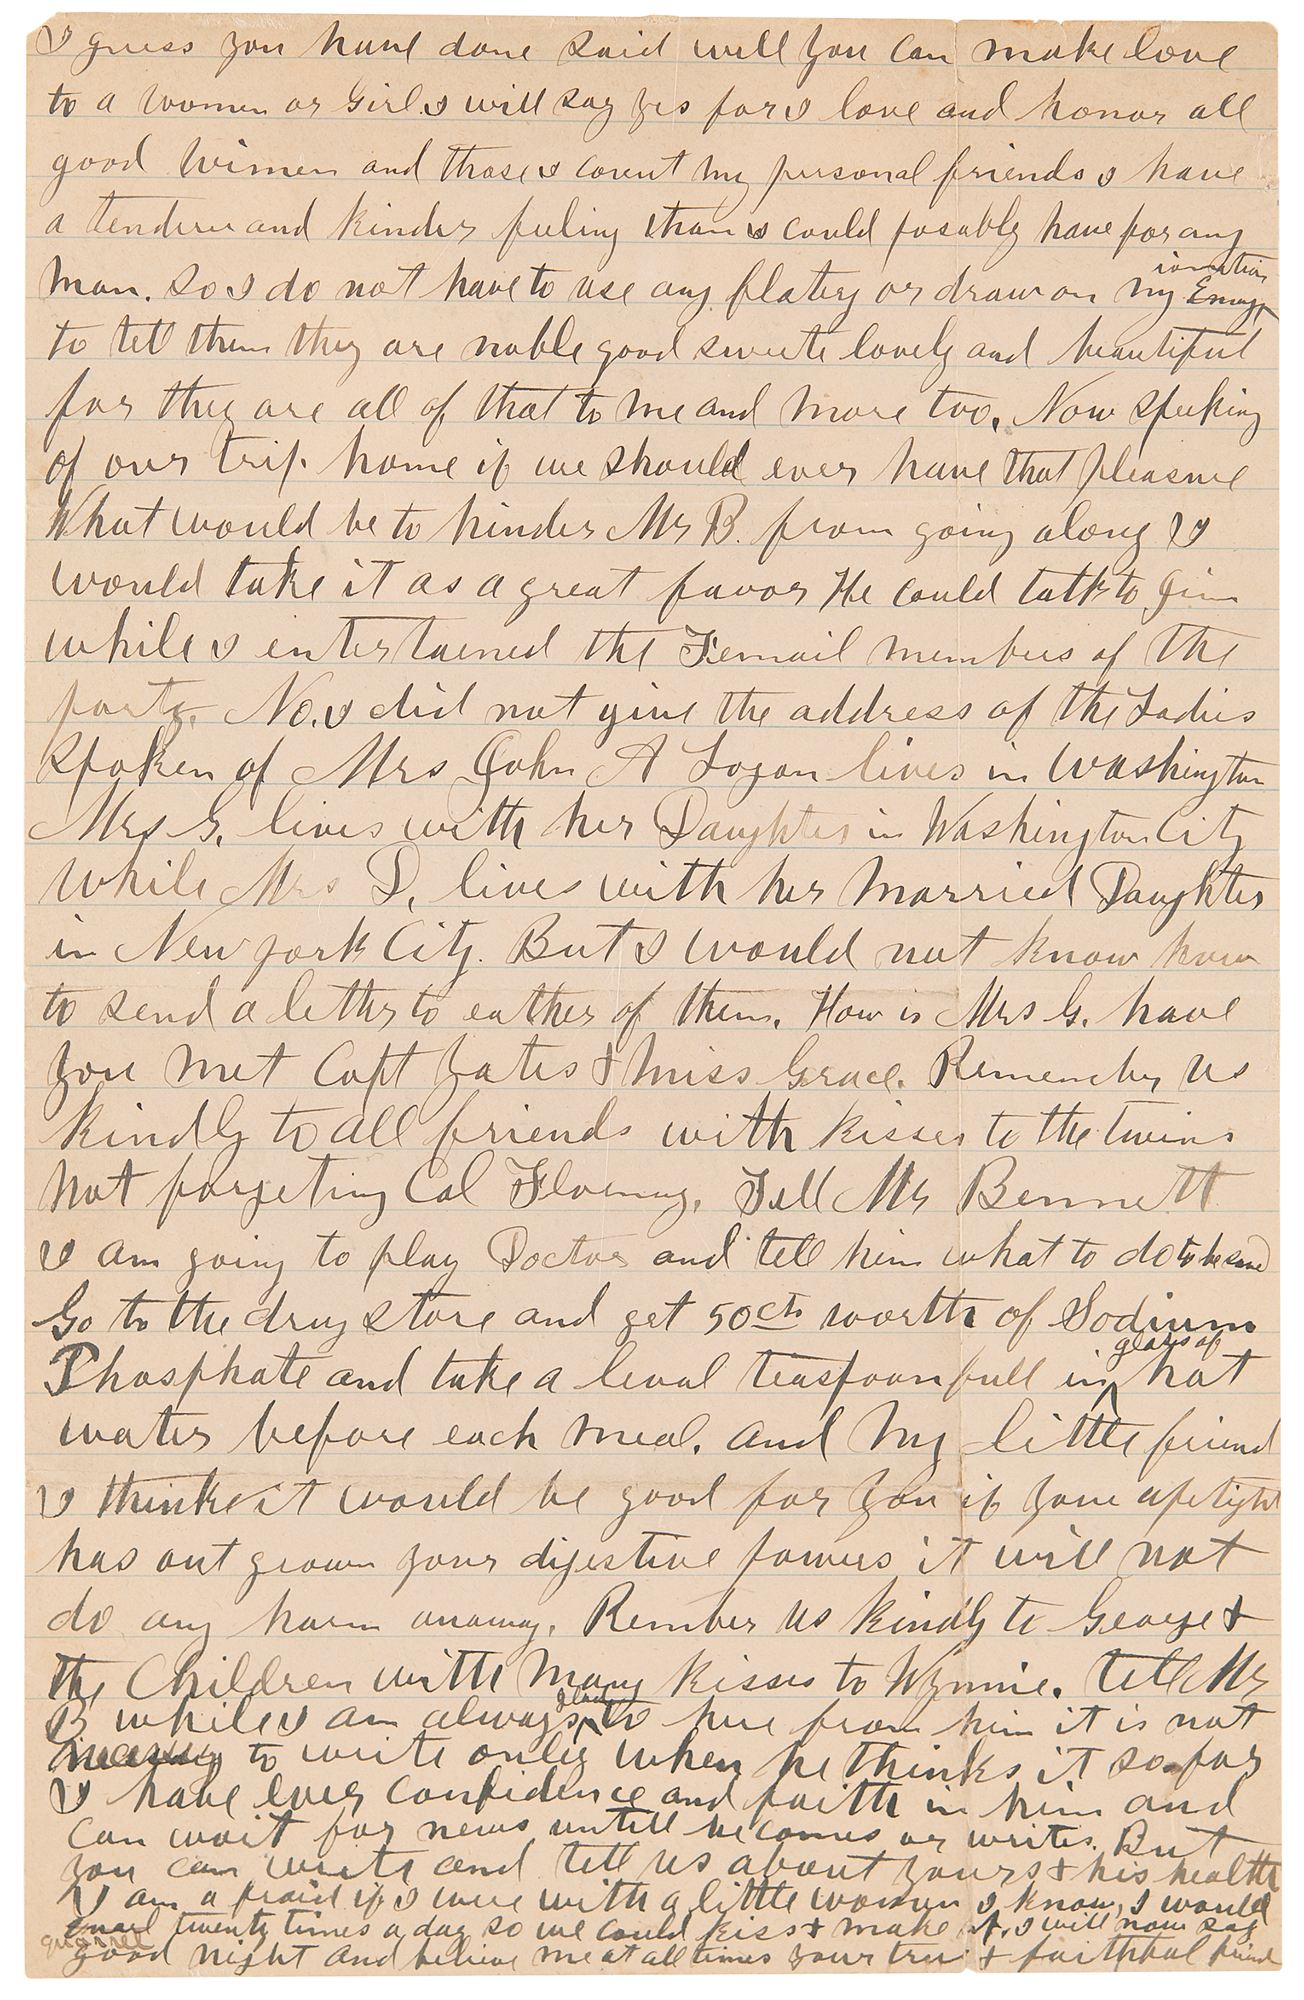 I guess you have done said will you can make love
to a women or Girl. I will say yes for I love and honor all
good wimen and those I count my personal friends I have
a tenderer and kinder feeling than I could posably have for any
man. So I do not have to use any flatry or draw on my Emagionation
to tell them they are noble good sweete lovely and beautiful
for they are all of that to me and more too. Now speeking
of our trip home if we should ever have that pleasure
What would be to hinder Mr B. from going along I
would take it as a great favor He could talk to Jim
while I entertained the Femail members of the
party. No. I did not give the address of the Ladies
spoken of Mrs John A Logan lives in Washington
Mrs G. lives with her Daughter in Washington City
while Mrs D. lives with her married Daughter
in New york City. But I would not know how
to send a letter to eather of them. How is Mrs G. have
you met Capt Yates & Miss Grace. Remember us
kindly to all friends with kisses to the twins
not forgeting Col Flournoy. Tell Mr Bennett
I am going to play Doctor and tell him what to do to be saved
Go to the drug store and get 50cts worth of Sodium
Phosphate and take a leval teaspoon full in glass of hot
water before each meal. and my little friend
I think it would be good for you if your apetight
has out grown your digestive powers it will not
do any harm anaway. Rember us kindly to George &
the Children with many kisses to Wynnie. tell Mr
B while I am always glad to here from him it is not
to write only when he thinks it so. for
I have ever confidence and faith in him and
can wait for news untill he comes or writes. But
you can write and tell us about yours & his health
I am a fraid if I were with a little women I know, I would
quarrel twenty times a day so we could kiss & make up. I will now say
good night and believe me at all times your true & faithful friend